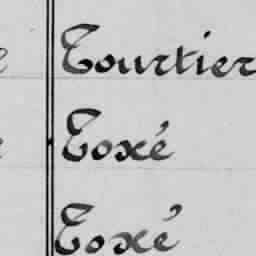 Tourtier
Toxé
Toxé